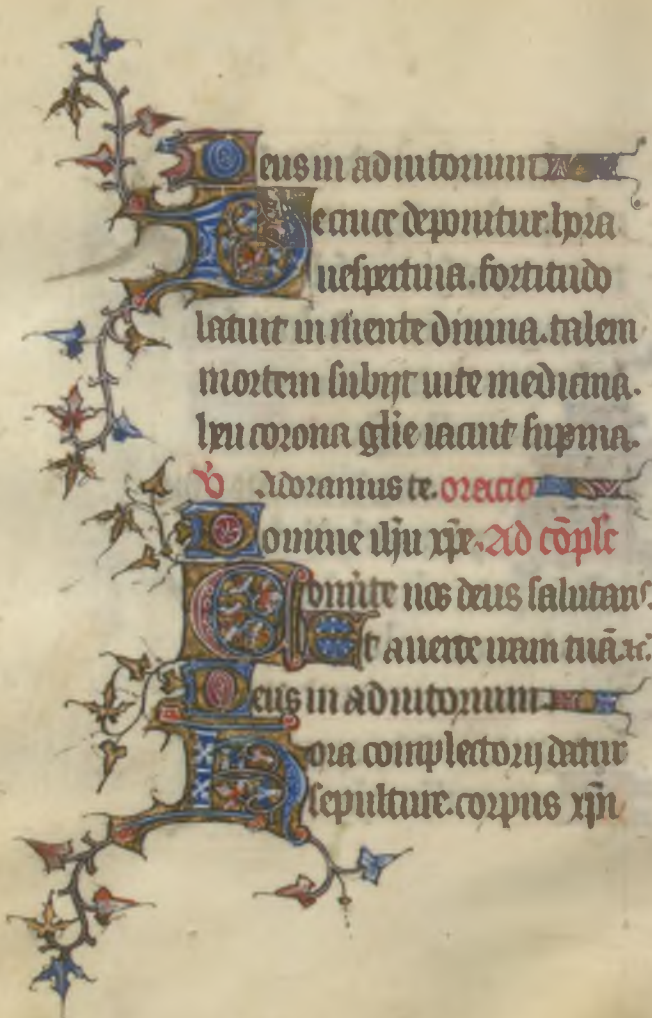 Deus in adiutorium
De cruce deponitur. hora
uespertina. fortitudo
latuit in mente diuina. talem
mortem subijt uite medicina.
heu corona glīe iacuit supīna.
℣ Adoramus te. oracio
Domine ihū xp̄e. Ad cōplē
Conuite nos deus salutaris
Et auerte iram tuā. ꝛc̄.
Deus in adiutorium
Hora completorij datur
sepulture. corpus xp̄i